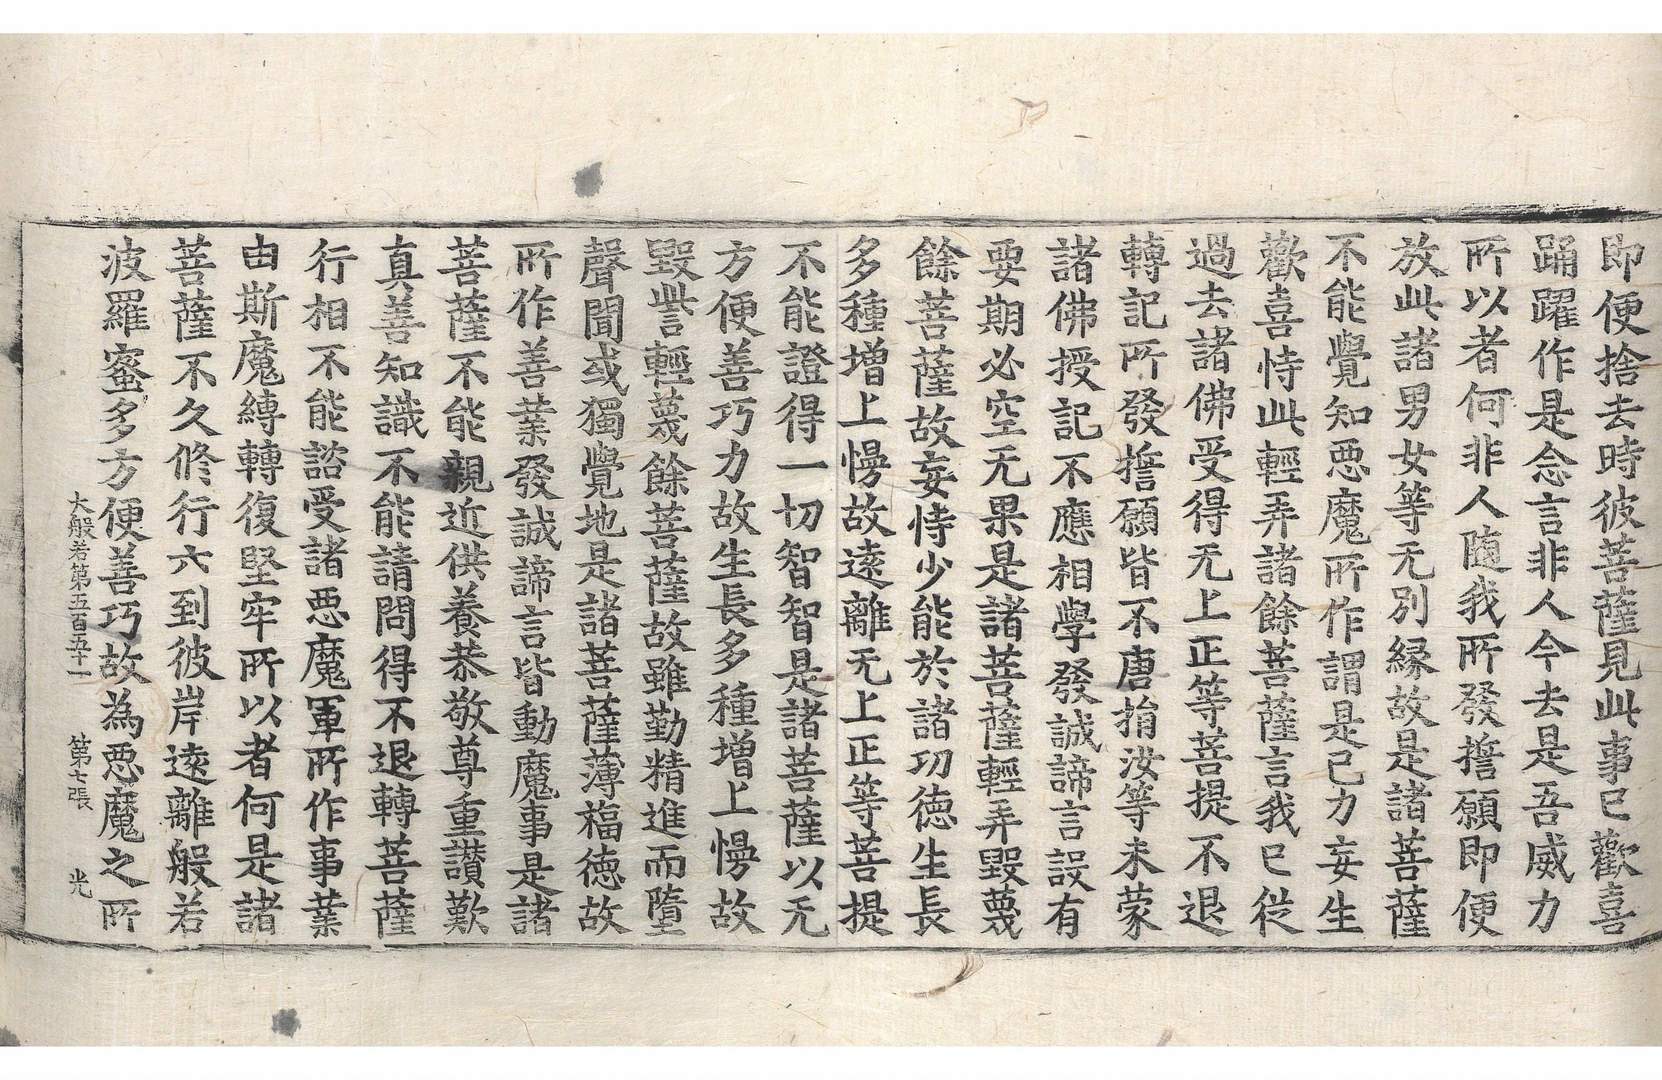 即便捨去時彼菩薩見此事已歡喜
踊躍作是念言非人今去是吾威力
所以者何非人随我所發擔願即便
放此諸男女等无別縁故是諸菩薩
不能覺知惡魔所作謂是己力妄生
歡喜恃此輕弄諸餘菩薩言我已從
過去諸佛受得无上正等菩提不退
轉記所發擔願皆不唐捐汝等未蒙
諸佛授記不應相學發誠諦言設有
要期必空无果是諸菩薩輕弄毀蔑
餘菩薩故妄恃少能於諸功徳生長
多種增上慢故遠離无上正等菩提
不能證得一切智智是諸菩薩以无
方便善巧力故生長多種增上慢故
毀訾輕蔑餘菩薩故雖勤精進而墮
聲聞或獨覺地是諸菩薩薄福徳故
所作善業發誠諦言皆動魔事是諸
菩薩不能親近供養恭敬尊重讃歎
真善知識不能請問得不退轉菩薩
行相不能諮受諸惡魔軍所作事業
由斯魔縛轉復堅牢所以者何是諸
菩薩不久修行六到彼岸遠離般若
波羅蜜多方便善巧故為惡魔之所
大般若第五百五十一 第七張 光